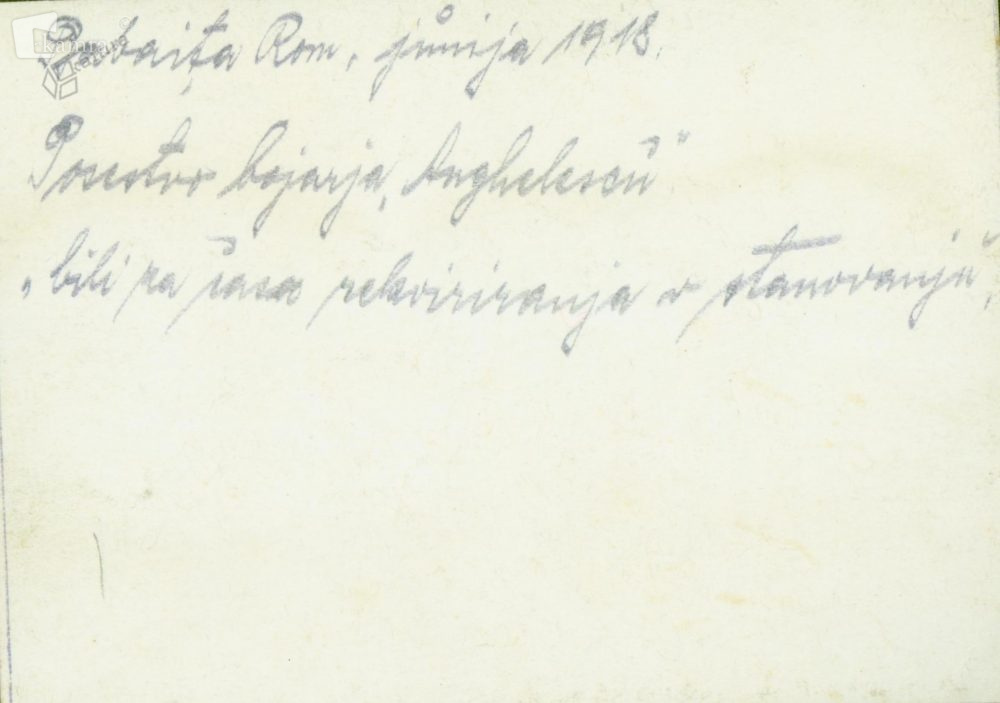 Rom, junija 1918.
Posestvo bojarja „Anghelescu"
„bili za časa rekviriranja v stanovanju",